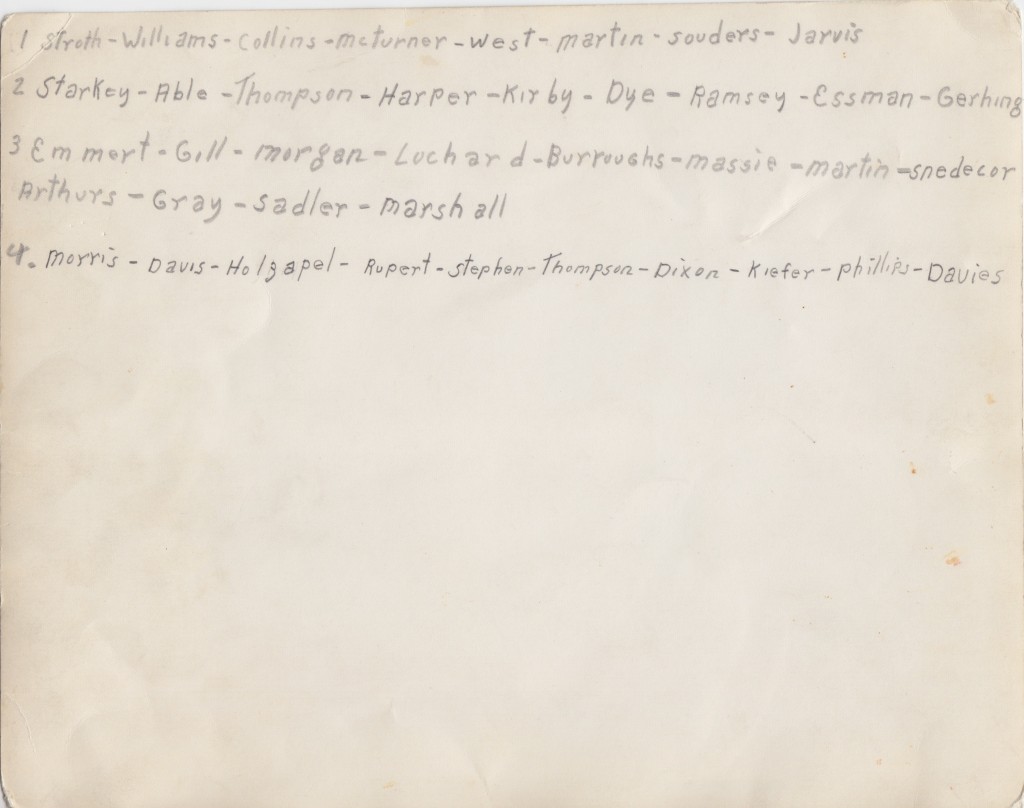 1 Stroth - Williams - Collins - mcturner - West - martin - souders - Jarvis
2 Starkey - Able - Thompson - Harper - Kirby - Dye - Ramsey - Essman - Gerhing
3 Emmert - Gill - morgan - Luchard - Burroughs - massie - martin - snedecor
Arthurs - Gray - Sadler - marshall
4. morris - Davis - Holzapel - Rupert - stephen - Thompson - Dixon - Kiefer - phillips - Davies